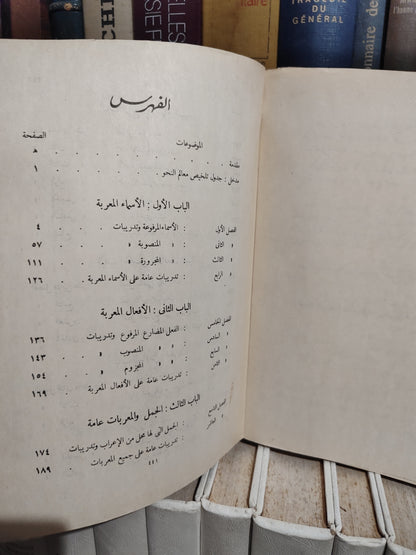 CHI
ELLES
SE F
ilaire
TRAGÉDIE
DU
GÉNÉRAL
onnaire des
MA
l'homme
الفهرس
الموضوعات الصفحة
مقدمة . . . . . . . . ه
مدخل : جدول تلخيص معالم النحو . . . . ١
الباب الأول : الأسماء المعربة
الفصل الأول : الأسماء المرفوعة وتدريبات . . . ٤
« الثانى : « المنصوبة « . . . ٥٧
« الثالث : « المجرورة « . . . ١١١
« الرابع : تدريبات عامة على الأسماء المعربة . . ١٢٦
الباب الثانى : الأفعال المعربة
الفصل الخامس : الفعل المضارع المرفوع وتدريبات . . ١٣٦
« السادس : « « المنصوب « . . ١٤٣
« السابع : « « المجزوم « . . ١٥٤
« الثامن : تدريبات عامة على الأفعال المعربة . . ١٦٩
الباب الثالث : الجمل والمعربات عامة
الفصل التاسع : الجمل التى لها محل من الإعراب وتدريبات ١٧٤
« العاشر : تدريبات عامة على جميع المعربات . ١٨٩